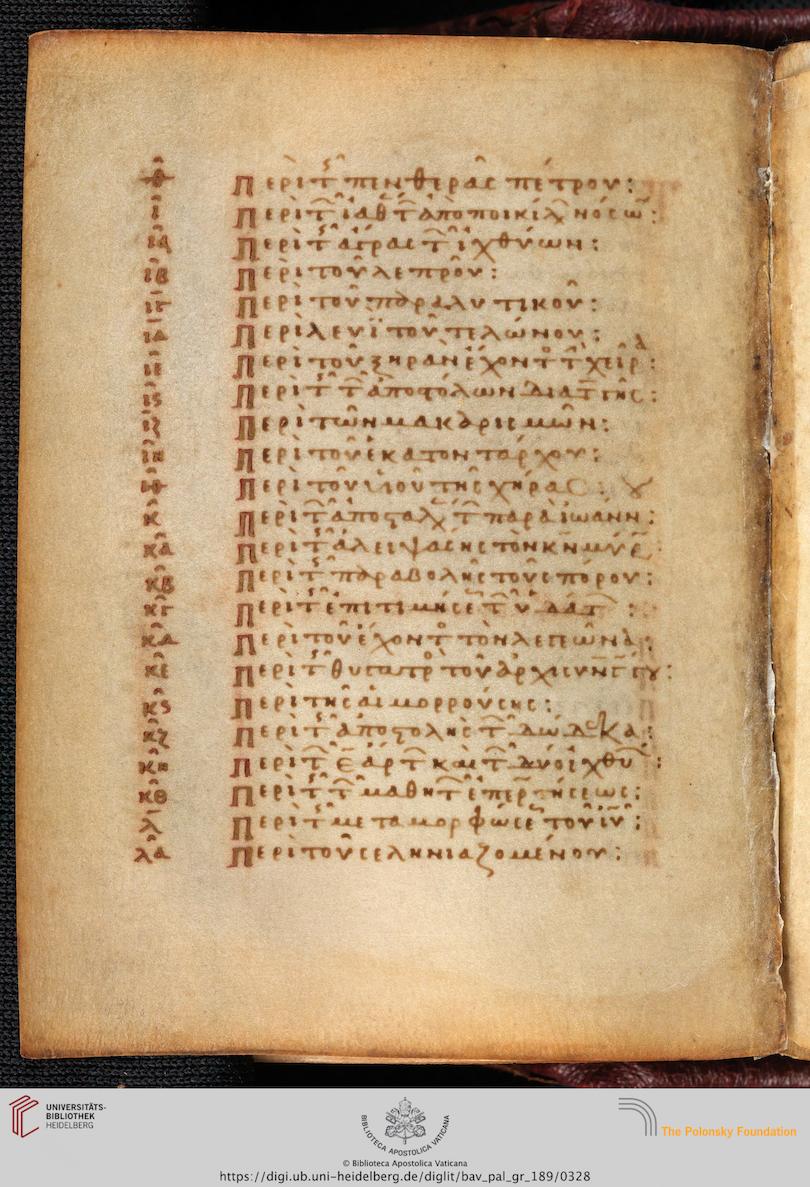 θ Περὶ τ πενθερᾶς πέτρου:
ι Περὶ τ ἰαθ τ ἀπὸ ποικίλ νόσω:
ια Περὶ τ ἄγρας τ ἰχθύων:
ιβ Περὶ τοῦ λεπροῦ:
ιγ Περὶ τοῦ παραλυτικοῦ:
ιδ Περὶ λευῒ τοῦ τελώνου:
ιε Περὶ τοῦ ξηρὰν ἔχοντ τ χεῖρ:
ις Περὶ τ τ ἀποστόλων διαταγῆς:
ιζ Περὶ τῶν μακαρισμῶν:
ιη Περὶ τοῦ ἑκατοντάρχου:
ιθ Περὶ τοῦ υἱοῦ τῆς χήρας:
κ Περὶ τ ἀποσταλ τ παρὰ ἰωάνν:
κα Περὶ τ ἀλειψάσης τὸν κν μύρ
κβ Περὶ τ παραβολῆς τοῦ σπόρου:
κγ Περὶ τ ἐπιτιμήσε τ ὑδάτ:
κδ Περὶ τοῦ ἔχοντ τὸν λεγεῶνα:
κε Περὶ τ θυγατρ τοῦ ἀρχισυναγώγ:
κς Περὶ τῆς αἱμορρούσης:
κζ Περὶ τ ἀποστολῆς τ δώδεκα:
κη Περὶ τ ε ἄρτ καὶ τ δύο ἰχθύ:
κθ Περὶ τ τ μαθητ ἐπερωτήσεως:
λ Περὶ τ μεταμορφώσε τοῦ ιυ:
λα Περὶ τοῦ σεληνιαζομένου:
UNIVERSITÄTS-
BIBLIOTHEK
HEIDELBERG
BIBLIOTECA APOSTOLICA VATICANA
The Polonsky Foundation
© Biblioteca Apostolica Vaticana
https://digi.ub.uni-heidelberg.de/diglit/bav_pal_gr_189/0328